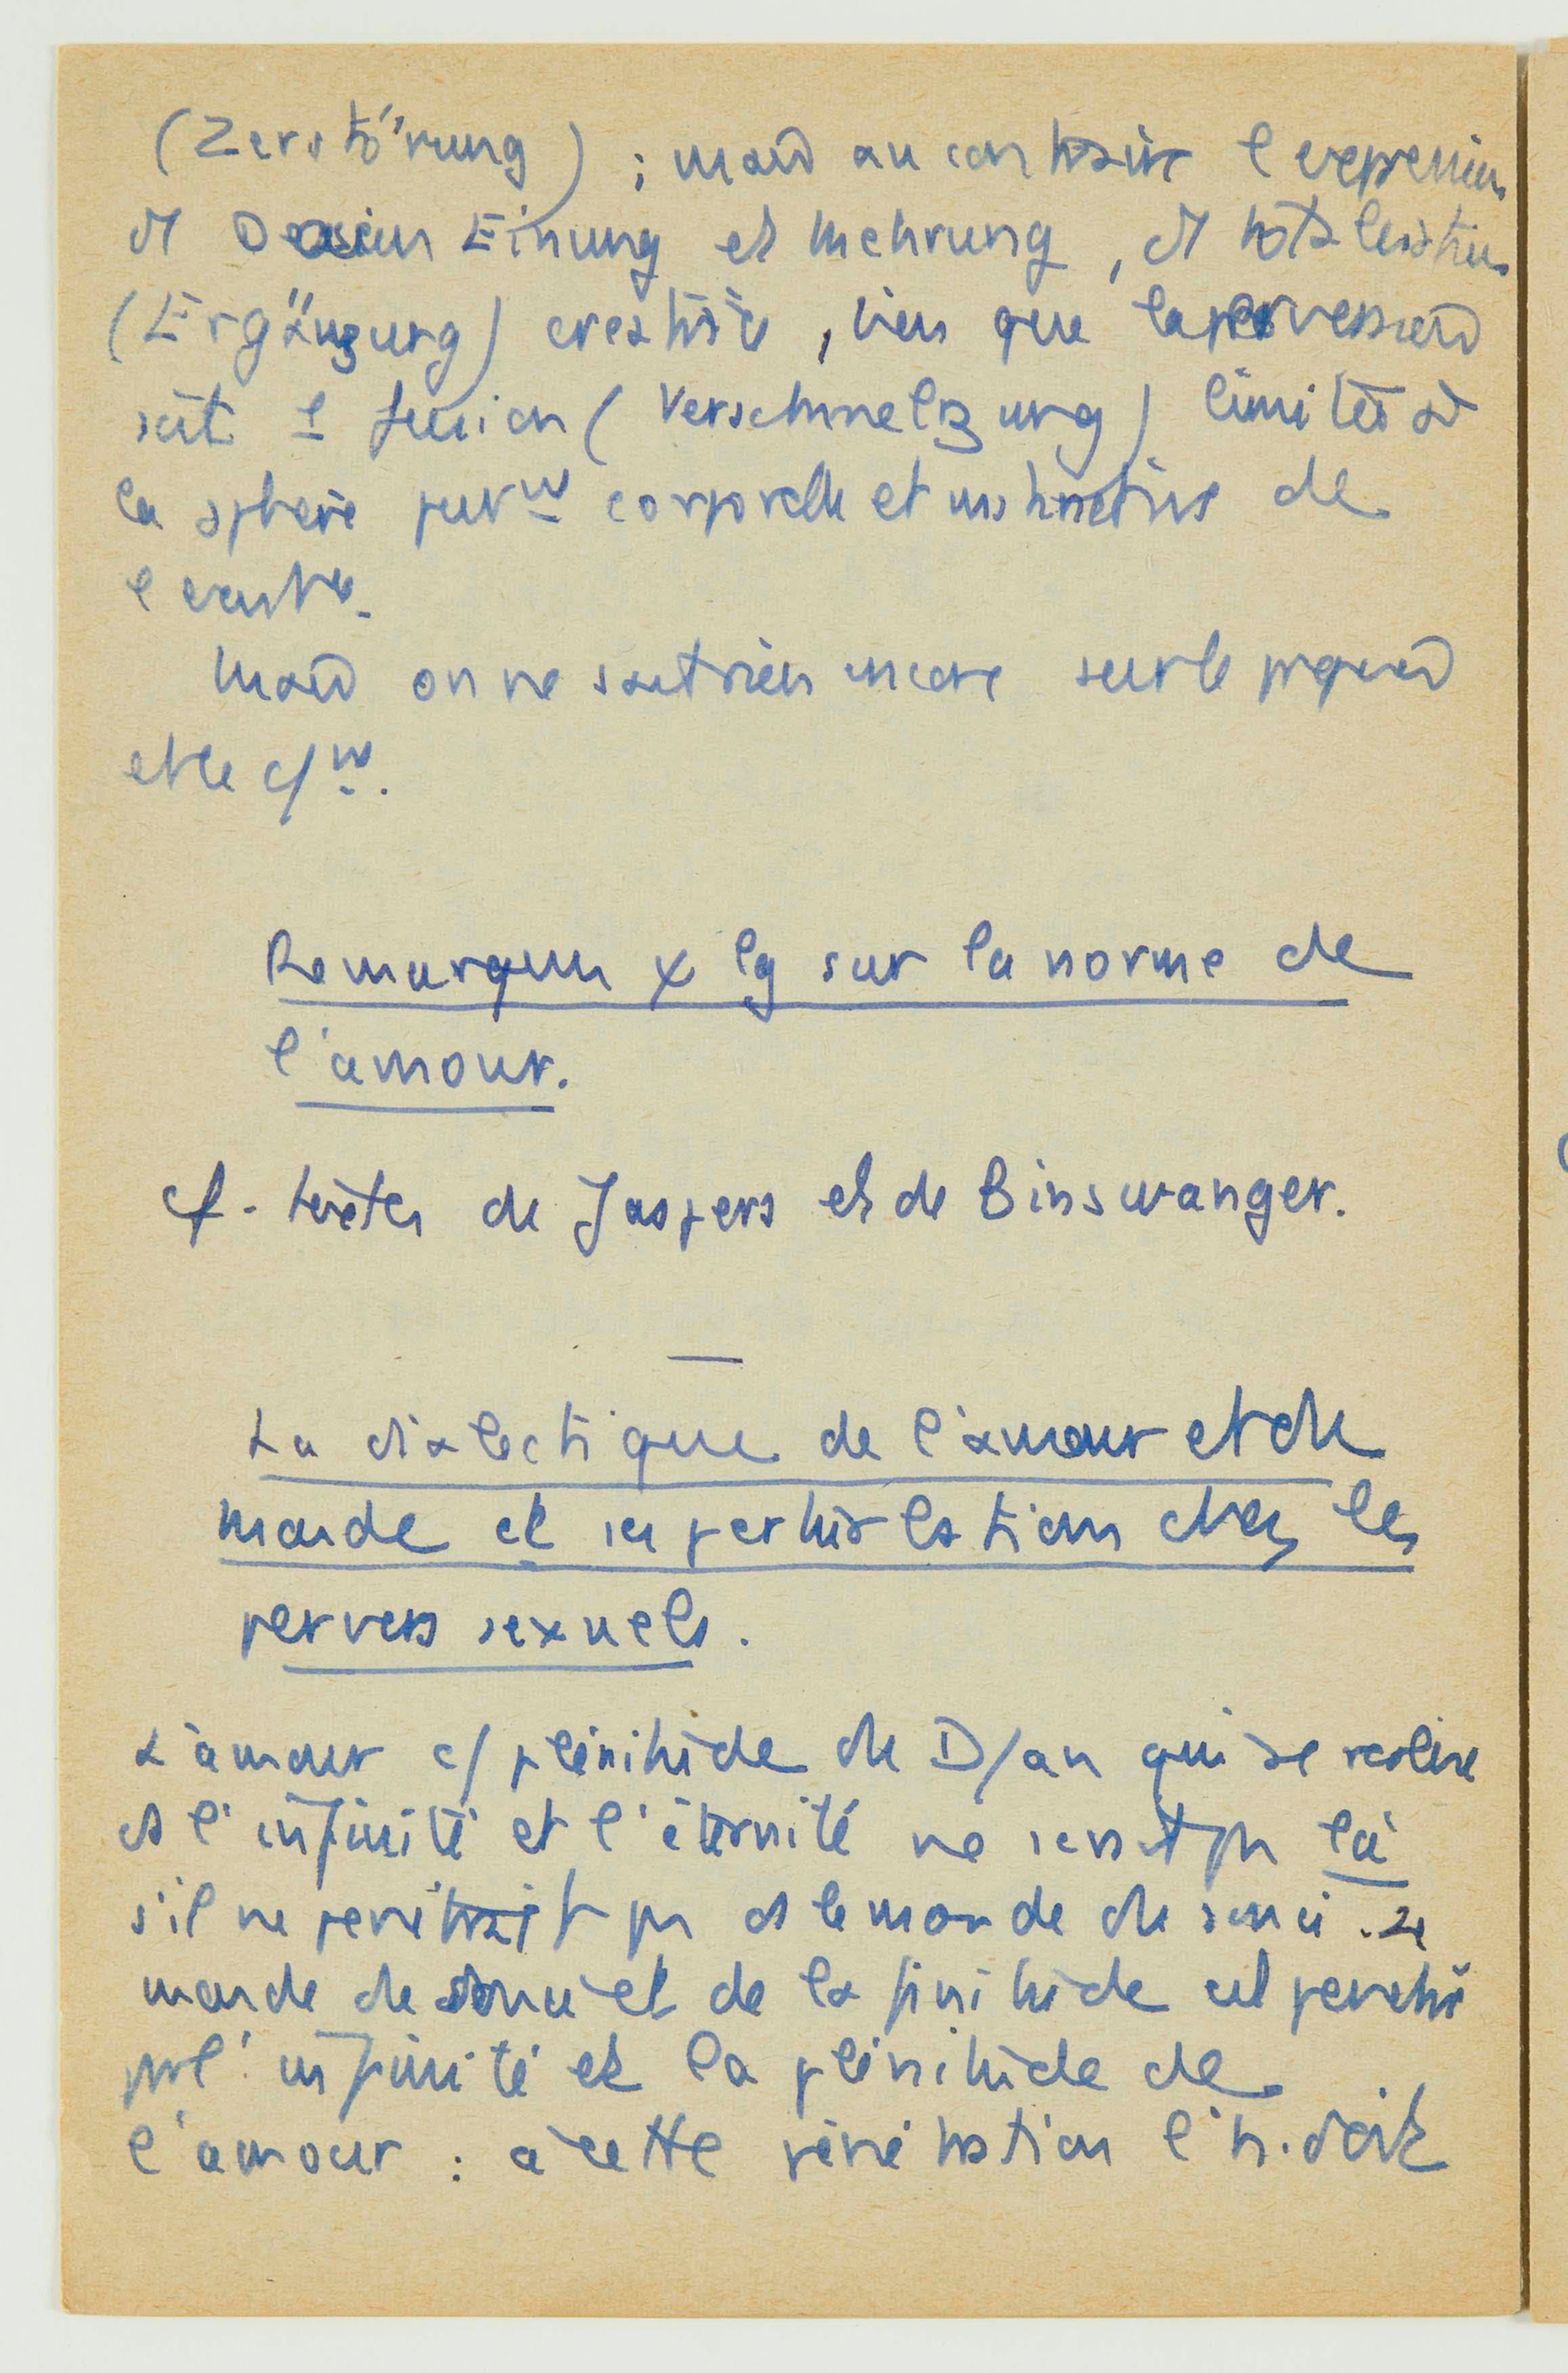 (Zerstörung) ; mais au contraire l'expression
d'1 Dasein Einung et Mehrung, d'1 totalisation
(Ergänzung) créatrice, bien que la perversion
soit 1 fusion (Verschmelzung) limitée à
la sphère purmt corporelle et instinctive de
l'exist.
Mais on ne sait rien encore sur le pourquoi
et le c/mt.
Remarques φ lg sur la norme de
l'amour.
cf. textes de Jaspers et de Binswanger.
La dialectique de l'amour et du
monde et ses perturbations chez les
pervers sexuels.
L'amour c/ plénitude du D/an qui se réalise
ds l'infinité et l'éternité ne serait pas là
s'il ne pénétrait pas ds le monde du souci. Le
monde du souci et de la finitude est pénétré
par l'infinité et la plénitude de
l'amour : à cette pénétration l'h. doit